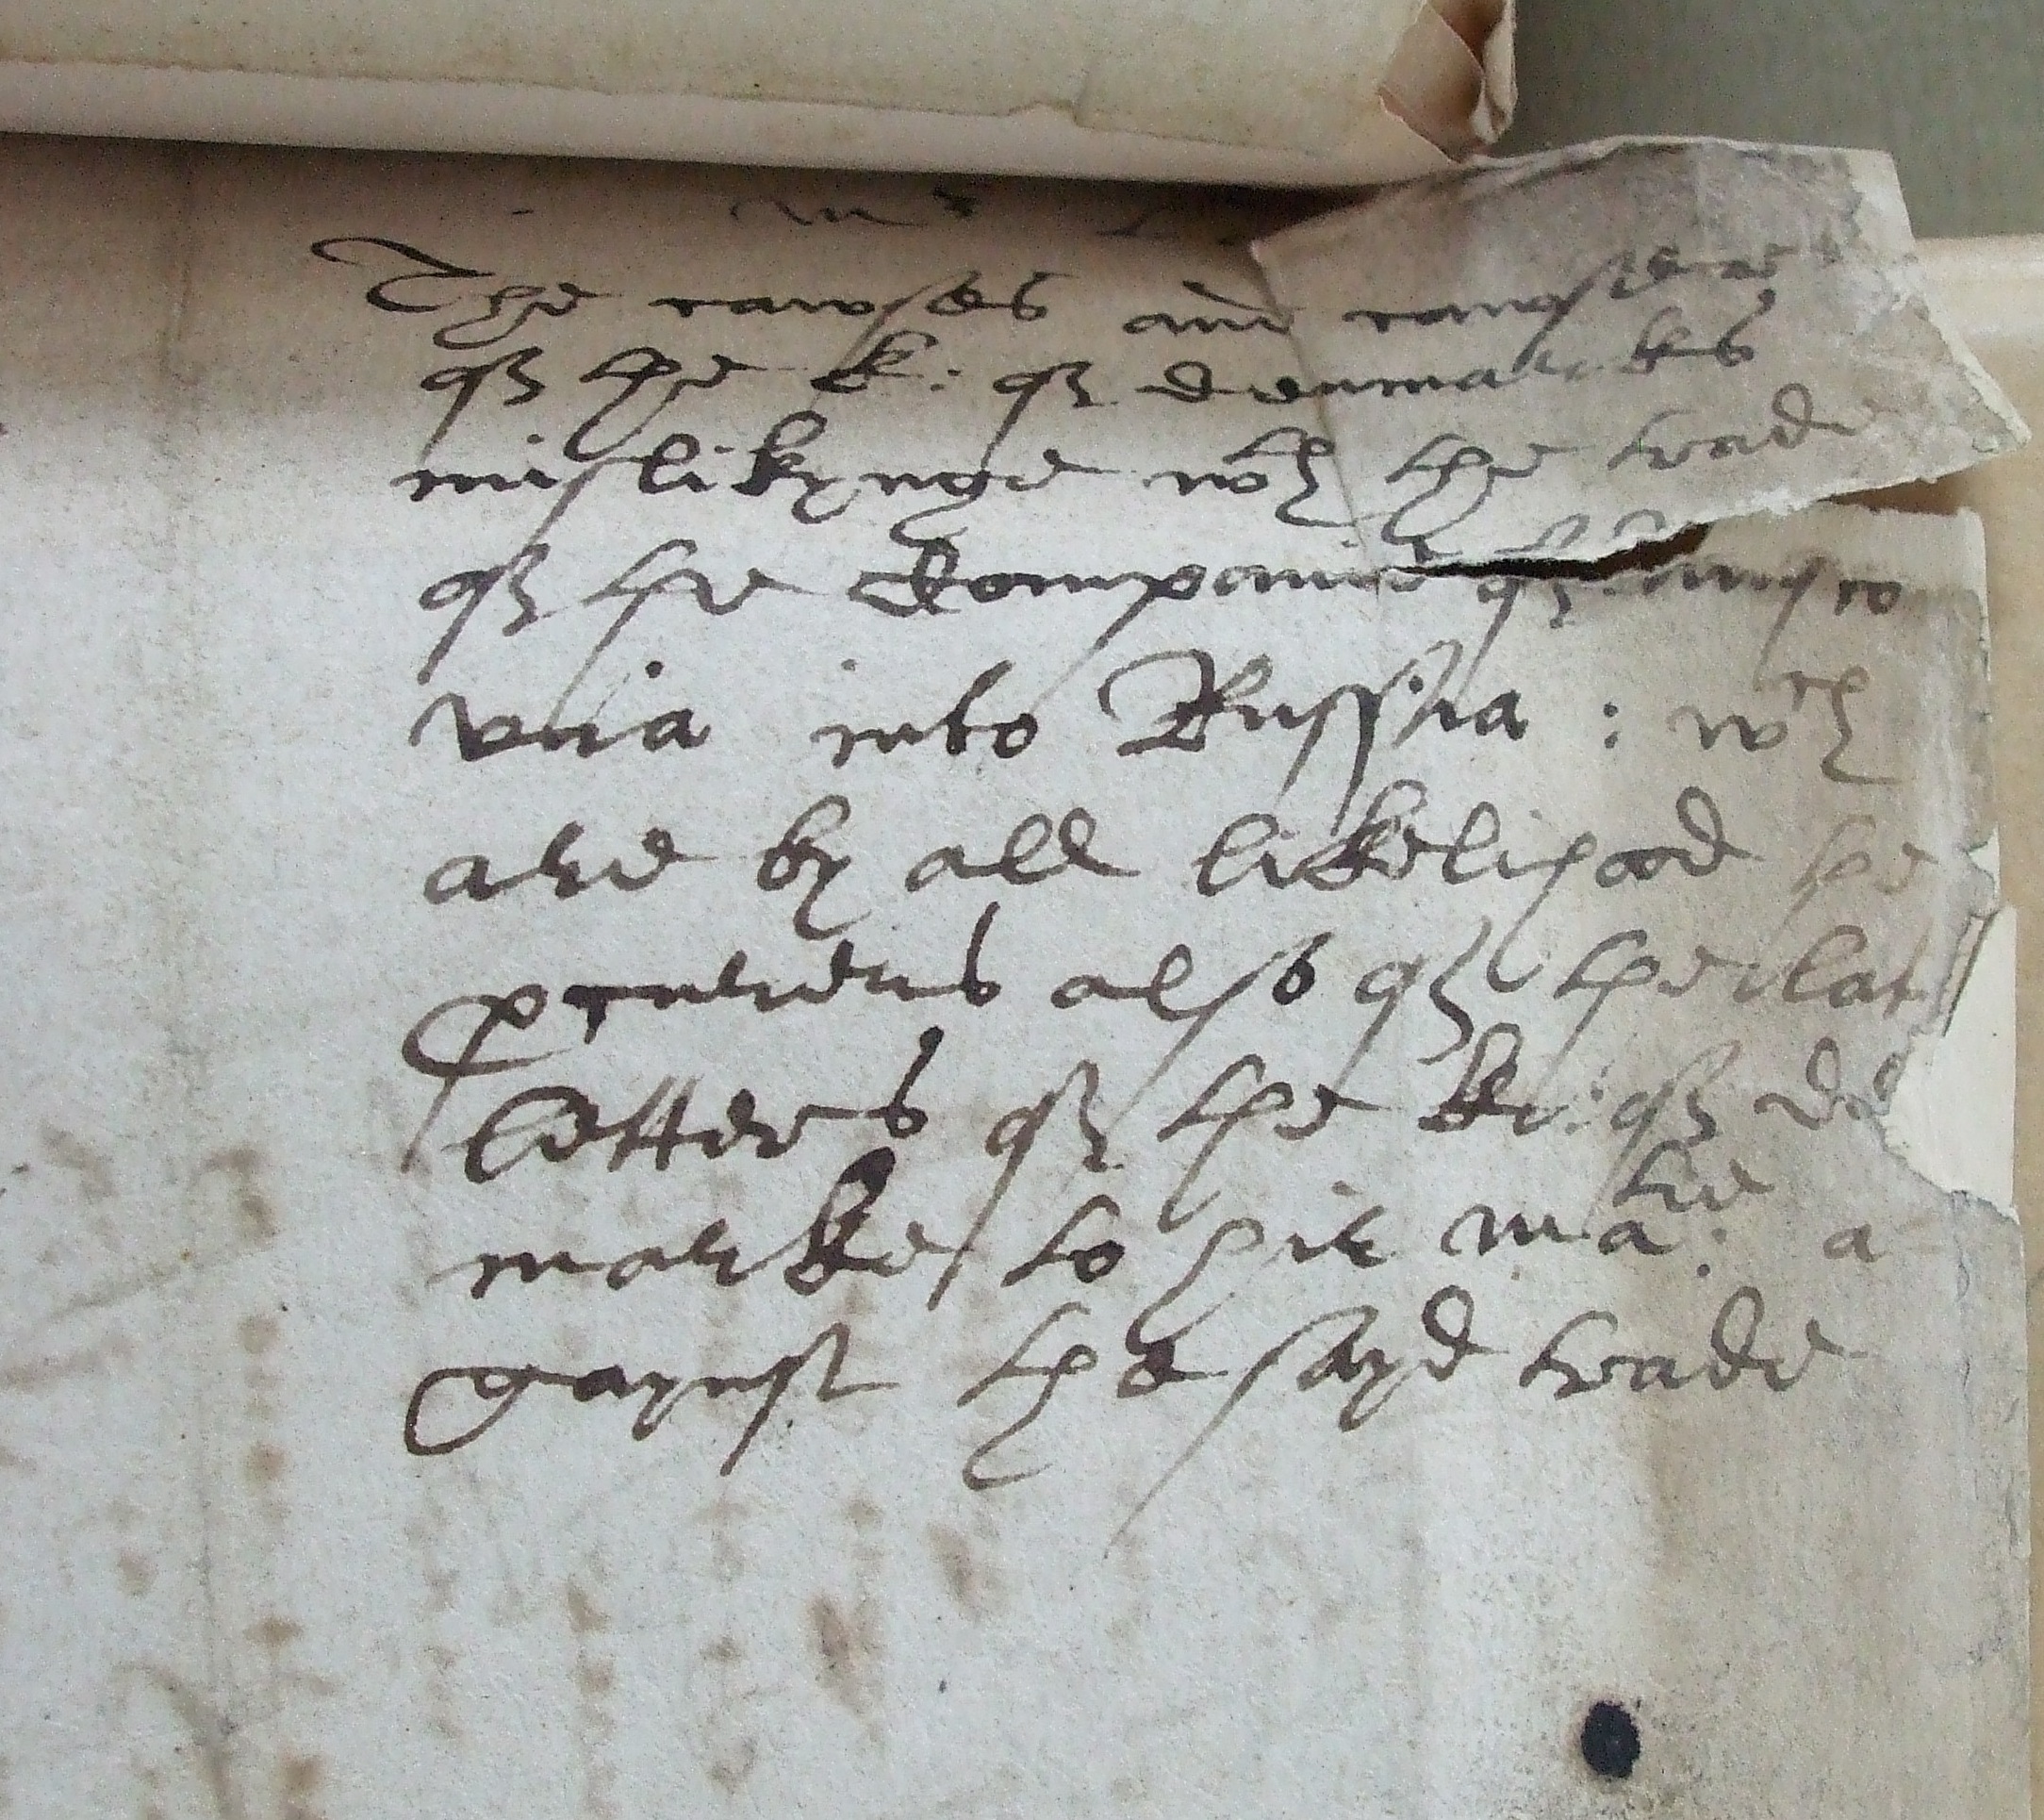 The cawses and
of the k: of denmarkes
mislikynge wth the trade
of the Companie of musco
via into Russia : wch
are by all likelihood the
contents also of the lat
letters of the ki: of de
marke to hir matie: a
gaynst the sayd trade